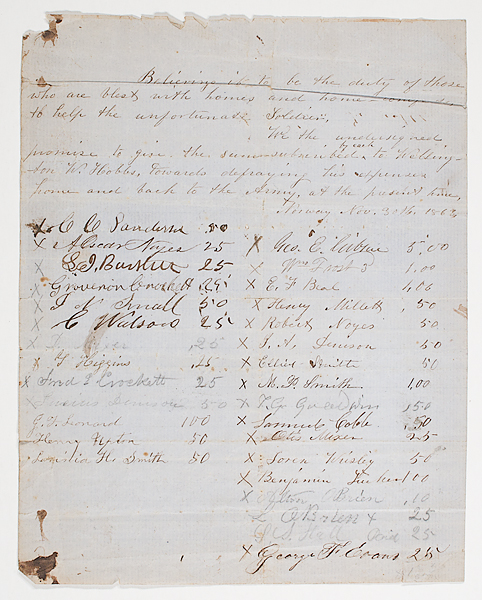 Believing it to be the duty of those
who are blest with homes and home comforts
to help the unfortunate Soldier,
We the undersigned
promise to give the sum subscribed to Welling-
ton W. Hobbs, towards defraying his expenses
home and back to the Army, at the present time,
Norway Nov. 30th 1862
X C C Sanderson 50
X Alscar Noyes 25
X S. I. Barker 25
X Grovenor Crockett 25
X Small 50
X C Watson 25
X 25
X Higgins 25
X Fred Crockett 25
X Denison 50
G. F. Leonard 100
Henry Upton 50
H. Smith 50
X Geo. E. Gibson 5,00
X Wm Frost 3d 1,00
X E. F. Beal 1,00
X Henry Millett ,50
X Robert Noyes 50
X Denison 50
X Elliot Smith 50
X M. P. Smith 1,00
X Goodwin ,50
X Samuel Cobb 50
X Otis Mixer 25
X Soren 50
X Benjamin Tucker 1,00
X Brien ,10
X O Brien 25
25
X George F Evans 25